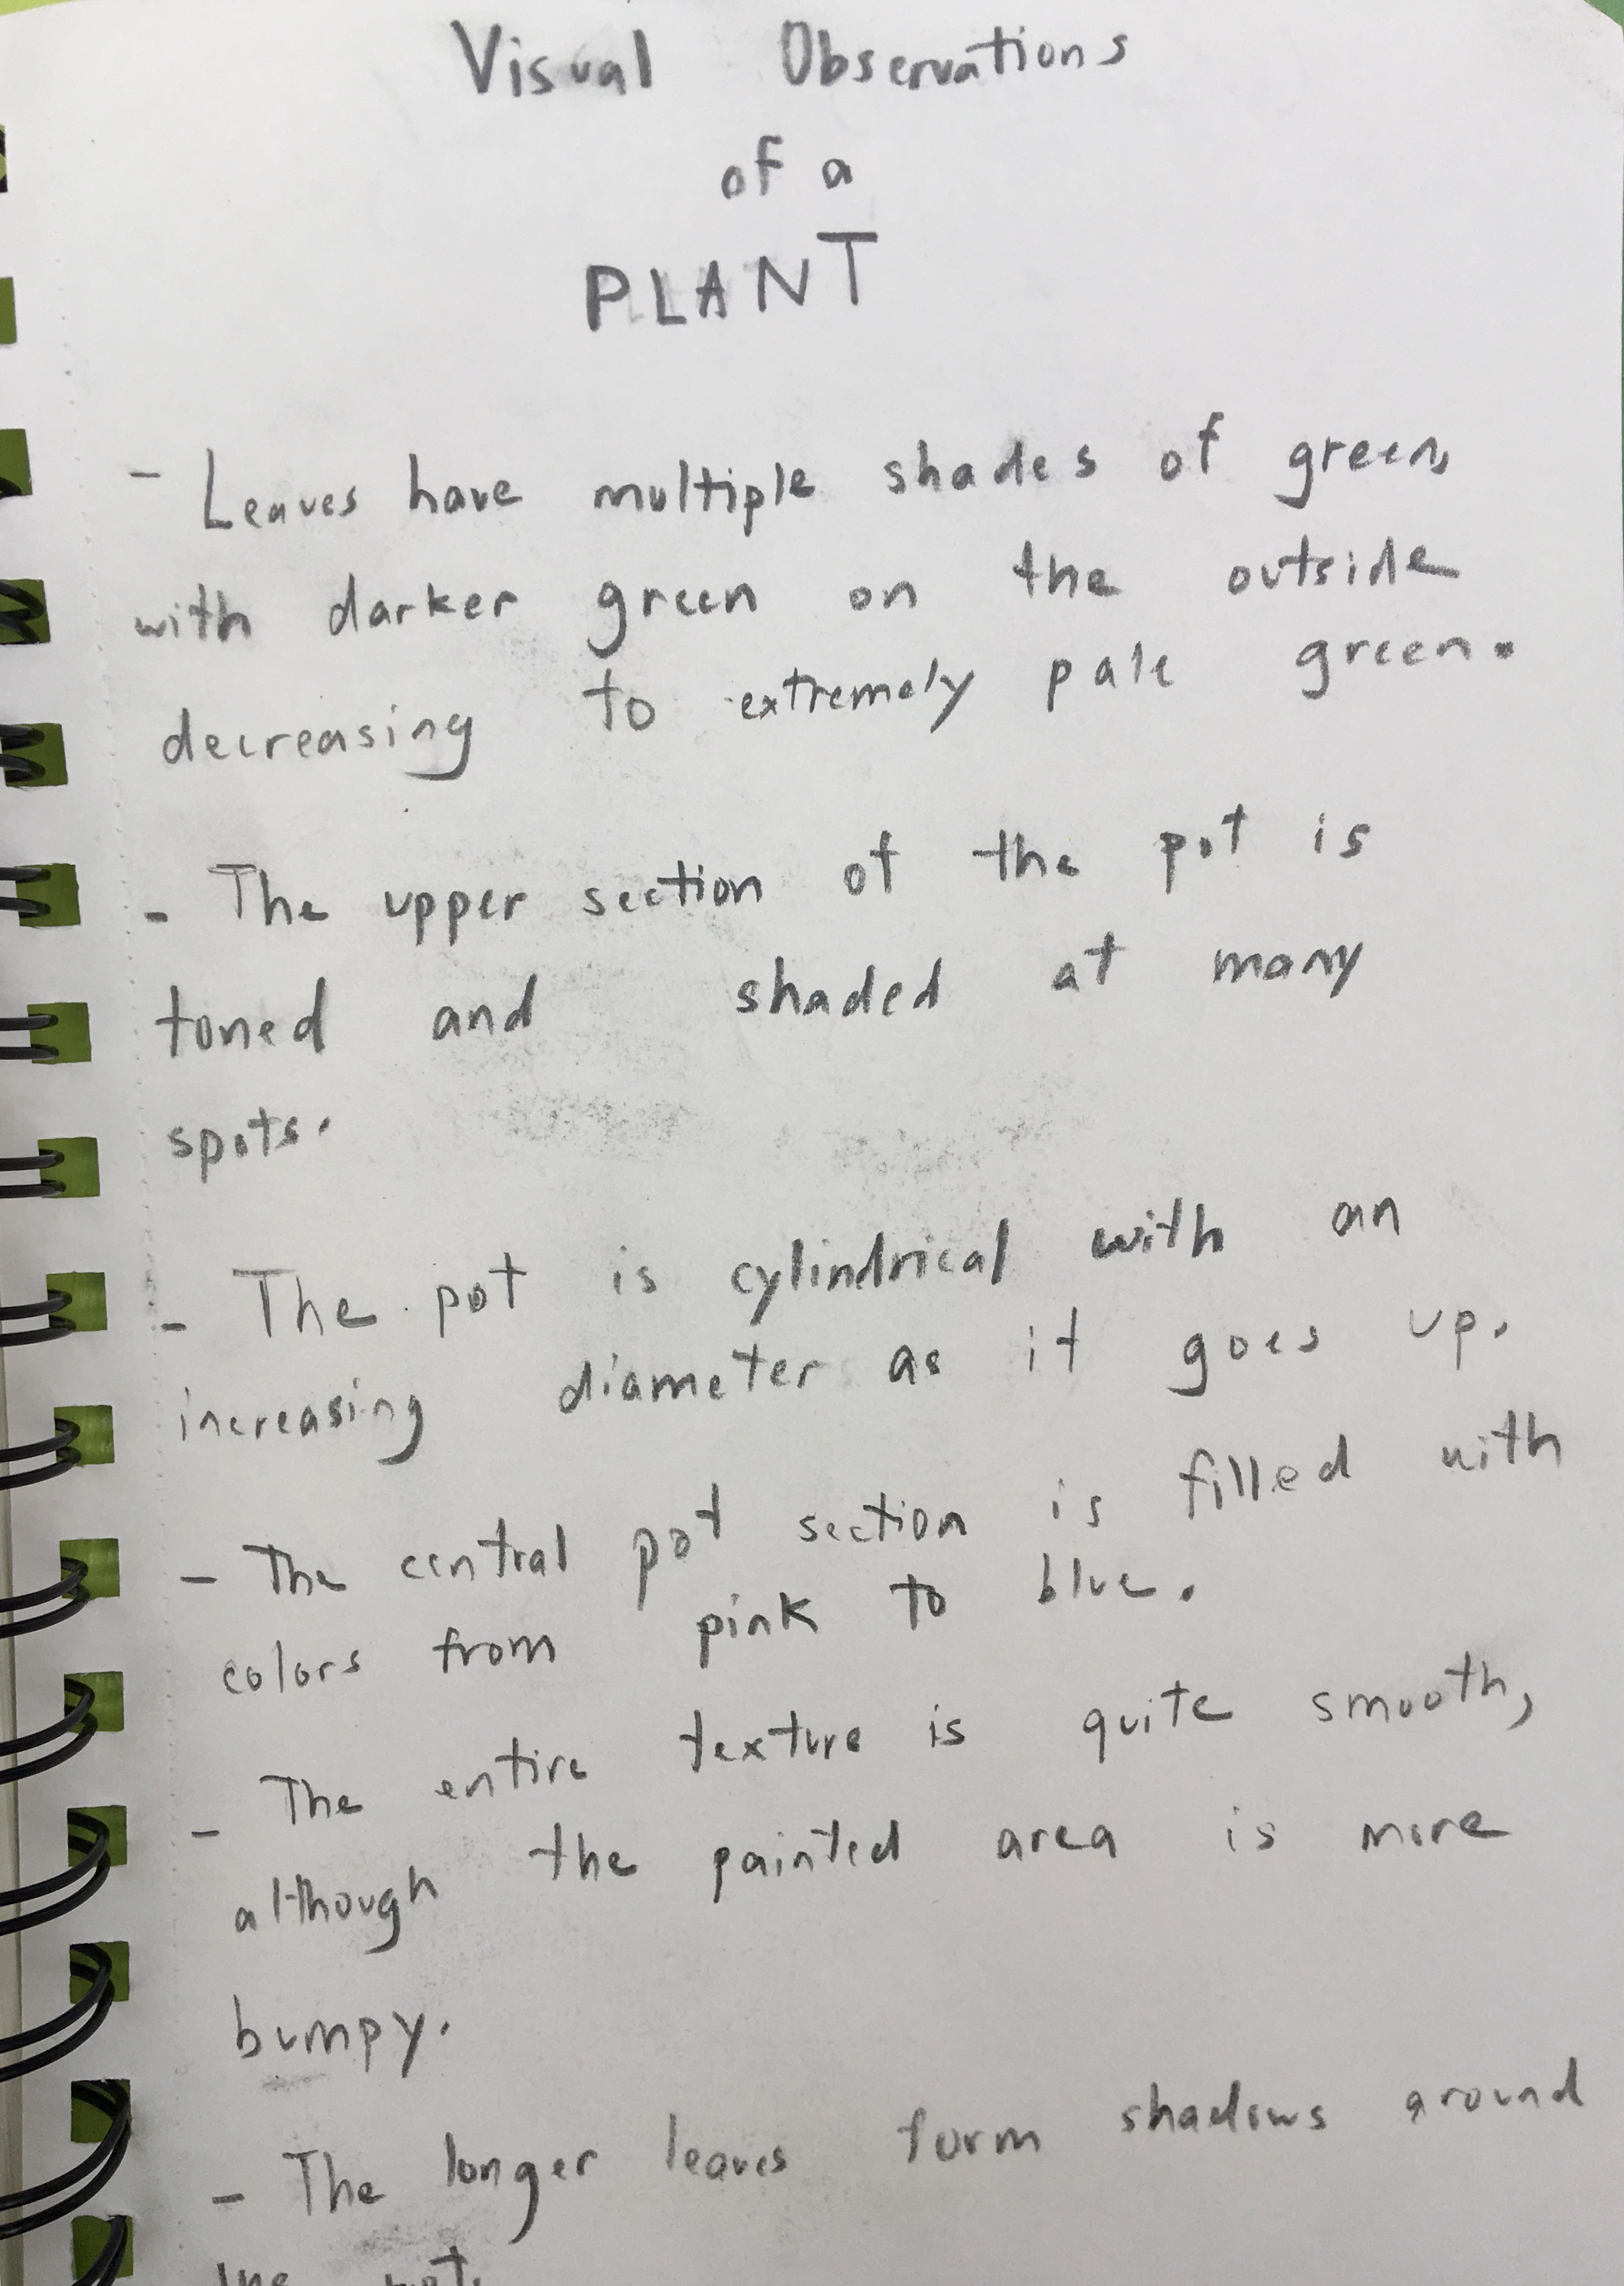 Visual Observations
of a
PLANT
- Leaves have multiple shades of green,
with darker green on the outside
decreasing to extremely pale green.
- The upper section of the pot is
toned and shaded at many
spots.
- The pot is cylindrical with an
increasing diameter as it goes up.
- The central pot section is filled with
colors from pink to blue.
- The entire texture is quite smooth,
although the painted area is more
bumpy.
- The longer leaves form shadows around
the pot.